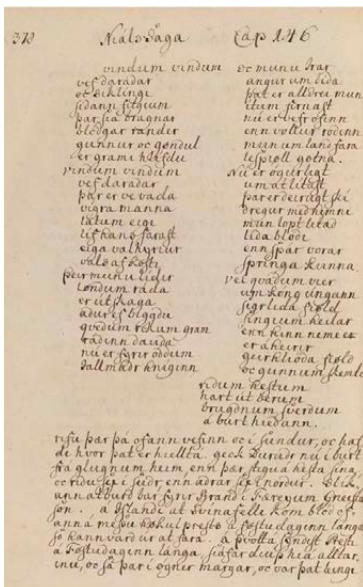 378 Nials Saga Cap 146
vindum vindum
vef daradar
oc siklingi
sidann fylgium
þar sia bragnar
blodgar rander
gunnur oc gondul
er grami hlifdu
vindum vindum
vef daradar
þar er ve vada
vigra manna
latum eigi
lif hans farast
eiga valkyriur
vals of kosti
þeir munu lidir
londum rada
er utskaga
adur of bygdu
qvedum rikum gram
radinn dauda
nu er fyrir oddum
Jallmadr hniginn
oc munu Irar
angur um bida
þat er alldrei mun
itum firnast
nu er vefr ofinn
enn vollur rodinn
mun um land fara
lespioll gotna.
Nu er ogurligt
um at litast
þar er dreirugt ski
dregur med himne
mun lopt litad
lida blodi
enn spár vorar
springa kunna
Vel qvadum vier
um kong ungann
sigrlioda fiold
singium heilar
enn hinn neme er
er á heirir
geirhlioda fiold
oc gunnum skemte
ridum hestum
hart ut berum
brugdnum sverdum
á burt hiedann.
rifu þær þá ofann vefinn oc i sundur, oc hafdi
hvor þat er hiellt á. geck Durudr nu i burt
frá glugnum oc heim, enn þær stigu á hesta sina
oc ridu sex i sudr enn adrar sex i nordr. Slikann
atburd bar fyrir Brand i Færeyum Gneista
son. á Islandi at Svinafelle kom blod of
anná messu hokul prests á Föstudaginn langa
so hann vard ur at fara. á Þvottá syndist Presti
á Föstudaginn langa, siáfar diup hiá alltar,
inu, oc sá þar i ogner margar, oc var þat leingi